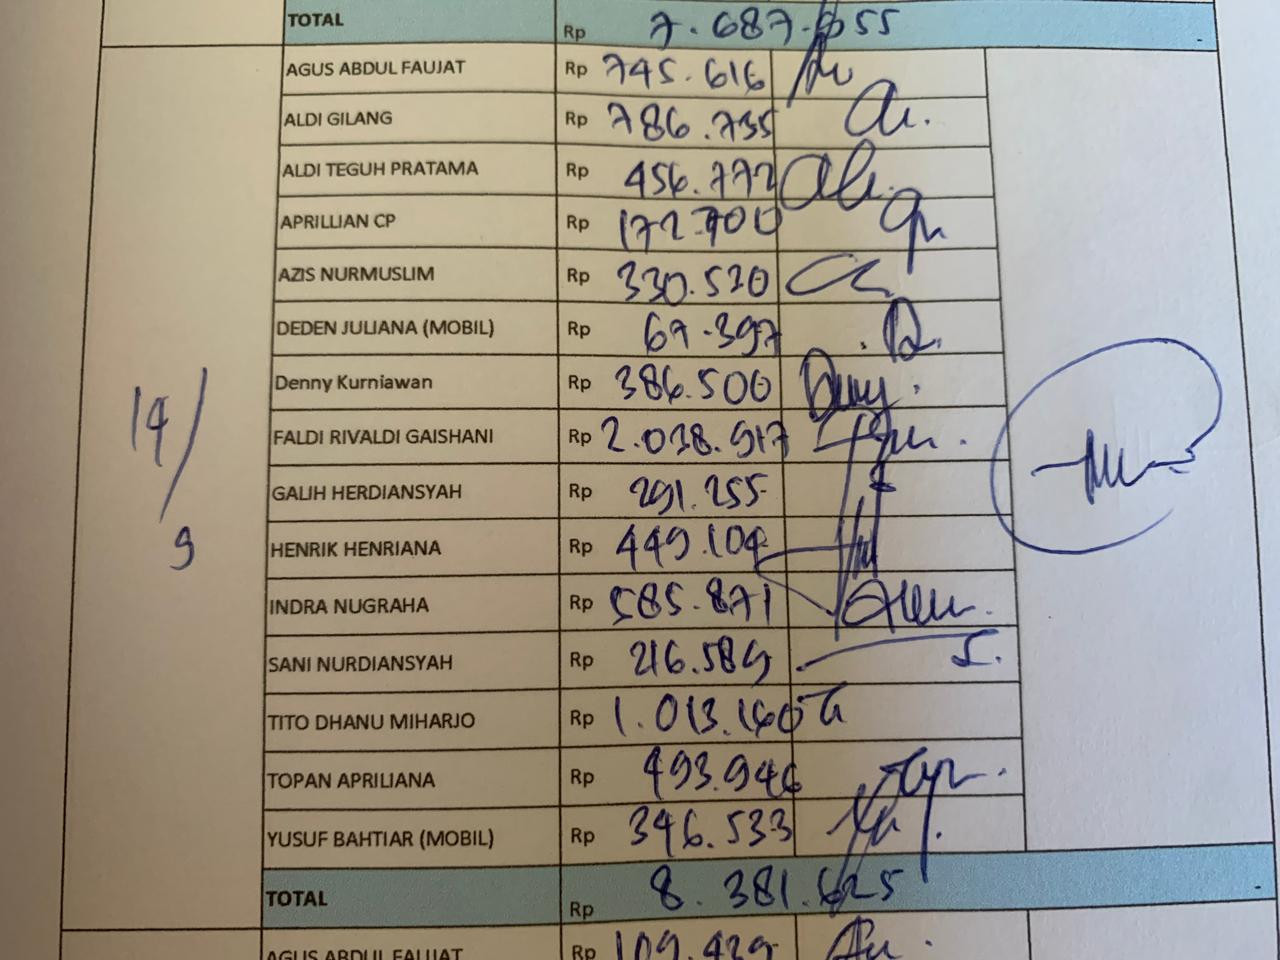 TOTAL Rp
AGUS ABDUL FAUJAT Rp 745.616
ALDI GILANG Rp 786.735
ALDI TEGUH PRATAMA Rp 456.772
APRILLIAN CP Rp 172.700
AZIS NURMUSLIM Rp 330.520
DEDEN JULIANA (MOBIL) Rp 67.397
Denny Kurniawan Rp 386.500
FALDI RIVALDI GAISHANI Rp 2.038.917
GALIH HERDIANSYAH Rp 291.255
14/9
HENRIK HENRIANA Rp 449.104
INDRA NUGRAHA Rp 585.871
SANI NURDIANSYAH Rp 216.589
TITO DHANU MIHARJO Rp 1.013.160
TOPAN APRILIANA Rp 493.946
YUSUF BAHTIAR (MOBIL) Rp 346.533
TOTAL Rp 8.381.625
AGUS ABDUL FAUJAT Rp 109.429